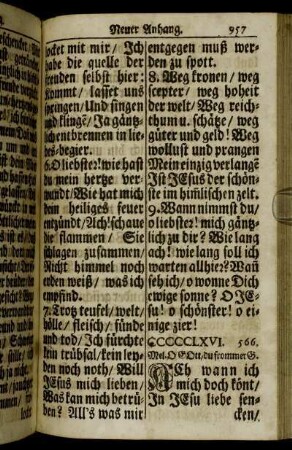 Neuer Anhang. 957
locket mit mir/ Ich
habe die quelle der
freuden selbst hier:
Kommt/ lasset uns
springen/ Und singen
und klingē/ Ja gäntz-
lich entbrennen in lie-
bes-begier.
6. O liebster! wie hast
du mein hertze ver-
wundt/ Wie hat mich
dein heiliges feuer
entzündt/ Ach! schaue
die flammen/ Sie
schlagen zusammen/
Nicht himmel noch
erden weiß/ was ich
empfind.
7. Trotz teufel/ welt/
hölle/ fleisch/ sünde
und tod/ Ich fürchte
kein trübsal/ kein ley-
den noch noth/ Will
JEsus mich lieben/
Was kan mich betrü-
ben? All's was mir
entgegen muß wer-
den zu spott.
8. Weg kronen/ weg
scepter/ weg hoheit
der welt/ Weg reich-
thum u. schätze/ weg
güter und geld! Weg
wollust und prangen
Mein einzig verlangē
Ist JEsus der schön-
ste im hiṁlischen zelt.
9. Wann nimmst du/
o liebster! mich gäntz-
lich zu dir? Wie lang
ach! wie lang soll ich
warten allhier? Wañ
seh ich/ o wonne Dich
ewige sonne? O JE-
su! o schönster! O ei-
nige zier!
CCCCCLXVI. 566.
Mel. O GOtt, du frommer G.
ACh wann ich
mich doch könt/
In JEsu liebe sen-
cken/